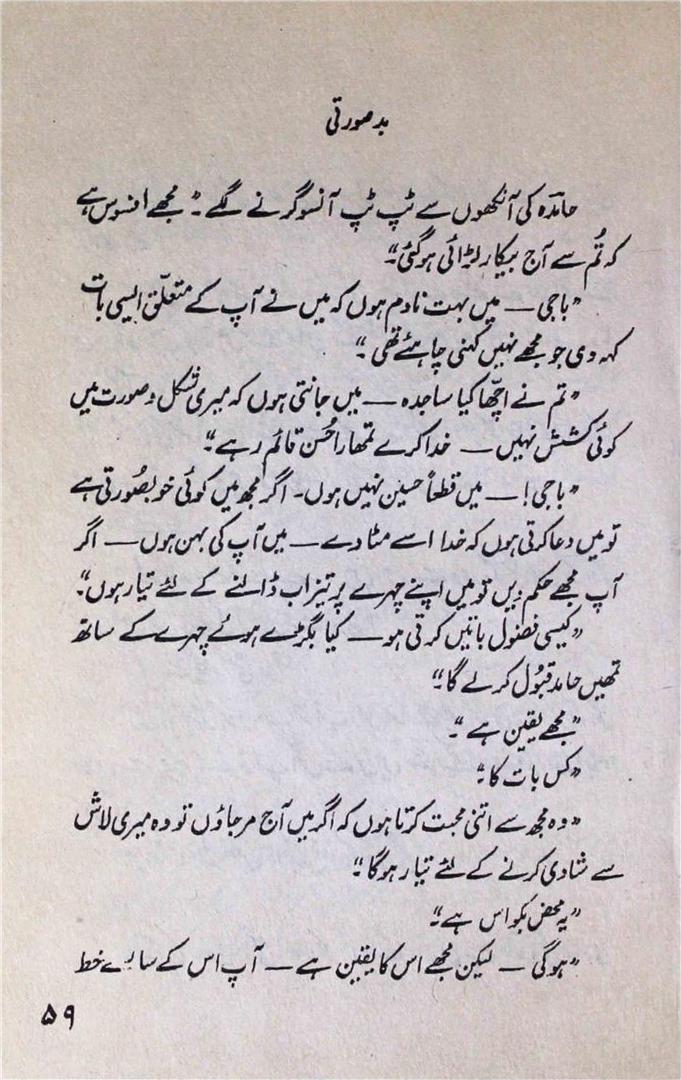 بدصورتی
حامدہ کی آنکھوں سے ٹپ ٹپ آنسو گرنے لگے۔ ”مجھے افسوس ہے
کہ تُم سے آج بیکار لڑائی ہو گئی۔“
”باجی — میں بہت نادم ہوں کہ میں نے آپ کے متعلّق ایسی بات
کہہ دی جو مجھے نہیں کہنی چاہئے تھی۔“
”تم نے اچّھا کیا ساجدہ — میں جانتی ہوں کہ میری شکل و صورت میں
کوئی کشش نہیں — خدا کرے تمھارا حُسن قائم رہے۔“
”باجی! — میں قطعاً حسین نہیں ہوں۔ اگر مجھ میں کوئی خوبصُورتی ہے
تو میں دعا کرتی ہوں کہ خدا اسے مٹا دے — میں آپ کی بہن ہوں — اگر
آپ مجھے حکم دیں تو میں اپنے چہرے پر تیزاب ڈالنے کے لئے تیار ہوں۔“
”کیسی فضول باتیں کرتی ہو — کیا بگڑے ہوئے چہرے کے ساتھ
تمھیں حامد قبُول کر لے گا؟“
”مجھے یقین ہے۔“
”کس بات کا؟“
”وہ مجھ سے اتنی محبت کرتا ہوں کہ اگر میں آج مر جاؤں تو وہ میری لاش
سے شادی کرنے کے لئے تیار ہو گا۔“
”یہ محض بکواس ہے۔“
”ہو گی — لیکن مجھے اس کا یقین ہے — آپ اس کے سارے خط
۵۹